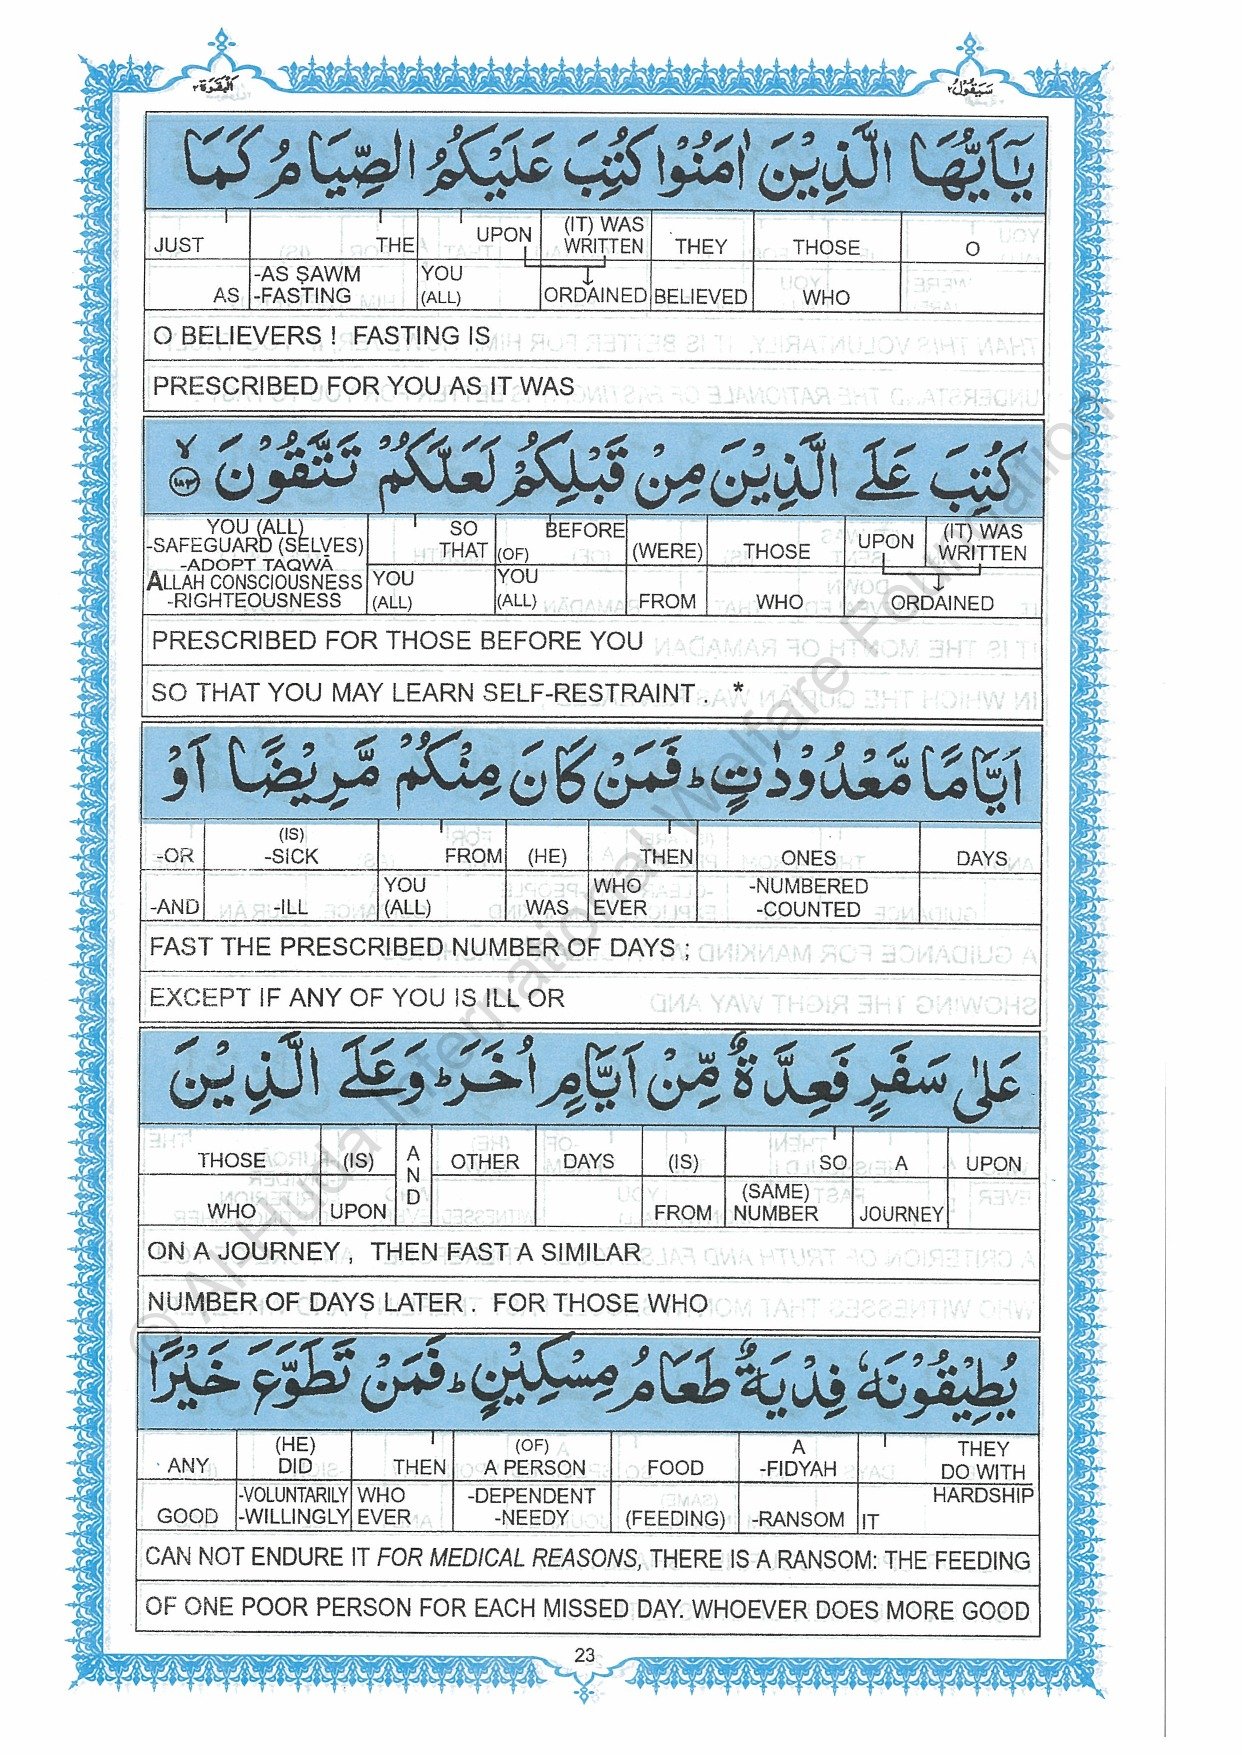 البقرة ٢
سيقول ٢
يٰٓاَيُّهَا الَّذِيْنَ اٰمَنُوْا كُتِبَ عَلَيْكُمُ الصِّيَامُ كَمَا
JUST THE UPON (IT) WAS WRITTEN THEY THOSE O
AS -AS ṢAWM -FASTING YOU (ALL) ORDAINED BELIEVED WHO
O BELIEVERS ! FASTING IS
PRESCRIBED FOR YOU AS IT WAS
كُتِبَ عَلَى الَّذِيْنَ مِنْ قَبْلِكُمْ لَعَلَّكُمْ تَتَّقُوْنَ ۙ ١٨٣
YOU (ALL) -SAFEGUARD (SELVES) -ADOPT TAQWĀ SO THAT BEFORE (OF) (WERE) THOSE UPON (IT) WAS WRITTEN
ALLAH CONSCIOUSNESS -RIGHTEOUSNESS YOU (ALL) YOU (ALL) FROM WHO ORDAINED
PRESCRIBED FOR THOSE BEFORE YOU
SO THAT YOU MAY LEARN SELF-RESTRAINT . *
اَيَّامًا مَّعْدُوْدٰتٍ ؕ فَمَنْ كَانَ مِنْكُمْ مَّرِيْضًا اَوْ
-OR (IS) -SICK FROM (HE) THEN ONES DAYS
-AND -ILL YOU (ALL) WAS WHO EVER -NUMBERED -COUNTED
FAST THE PRESCRIBED NUMBER OF DAYS ;
EXCEPT IF ANY OF YOU IS ILL OR
عَلٰى سَفَرٍ فَعِدَّةٌ مِّنْ اَيَّامٍ اُخَرَ ؕ وَعَلَى الَّذِيْنَ
THOSE (IS) AND OTHER DAYS (IS) SO A UPON
WHO UPON FROM (SAME) NUMBER JOURNEY
ON A JOURNEY , THEN FAST A SIMILAR
NUMBER OF DAYS LATER . FOR THOSE WHO
يُطِيْقُوْنَهٗ فِدْيَةٌ طَعَامُ مِسْكِيْنٍ ؕ فَمَنْ تَطَوَّعَ خَيْرًا
ANY (HE) DID THEN (OF) A PERSON FOOD A -FIDYAH THEY DO WITH HARDSHIP
GOOD -VOLUNTARILY -WILLINGLY WHO EVER -DEPENDENT -NEEDY (FEEDING) -RANSOM IT
CAN NOT ENDURE IT FOR MEDICAL REASONS, THERE IS A RANSOM: THE FEEDING
OF ONE POOR PERSON FOR EACH MISSED DAY. WHOEVER DOES MORE GOOD
23
© Al-Huda International Welfare Foundation